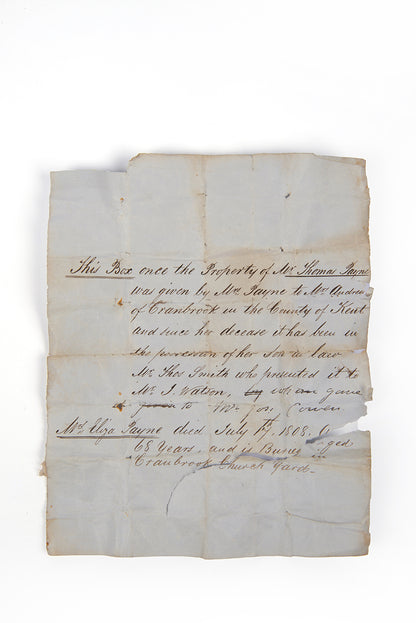 This Box once the Property of Mr Thomas Payne
was given by Mrs Payne to Mrs Andrew
of Cranbrook in the County of Kent
and since her decease it has been in
the possession of her son in law
Mr Thos Smith who presented it to
Mr J. Watson, by whom gave
to Mr Jos. Cowen
Mrs Eliza Payne died July 17, 1808, Aged
68 Years, and is Buried in
Cranbrook Church Yard-